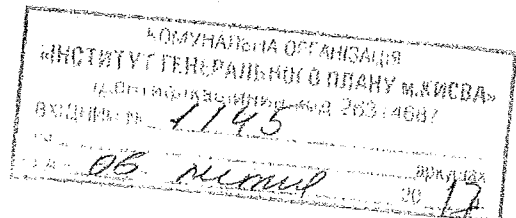 КОМУНАЛЬНА ОРГАНІЗАЦІЯ
«ІНСТИТУТ ГЕНЕРАЛЬНОГО ПЛАНУ м.КИЄВА»
Ідентифікаційний код
ВХІДНИЙ № 1145
на аркушах
06 липня 20 17